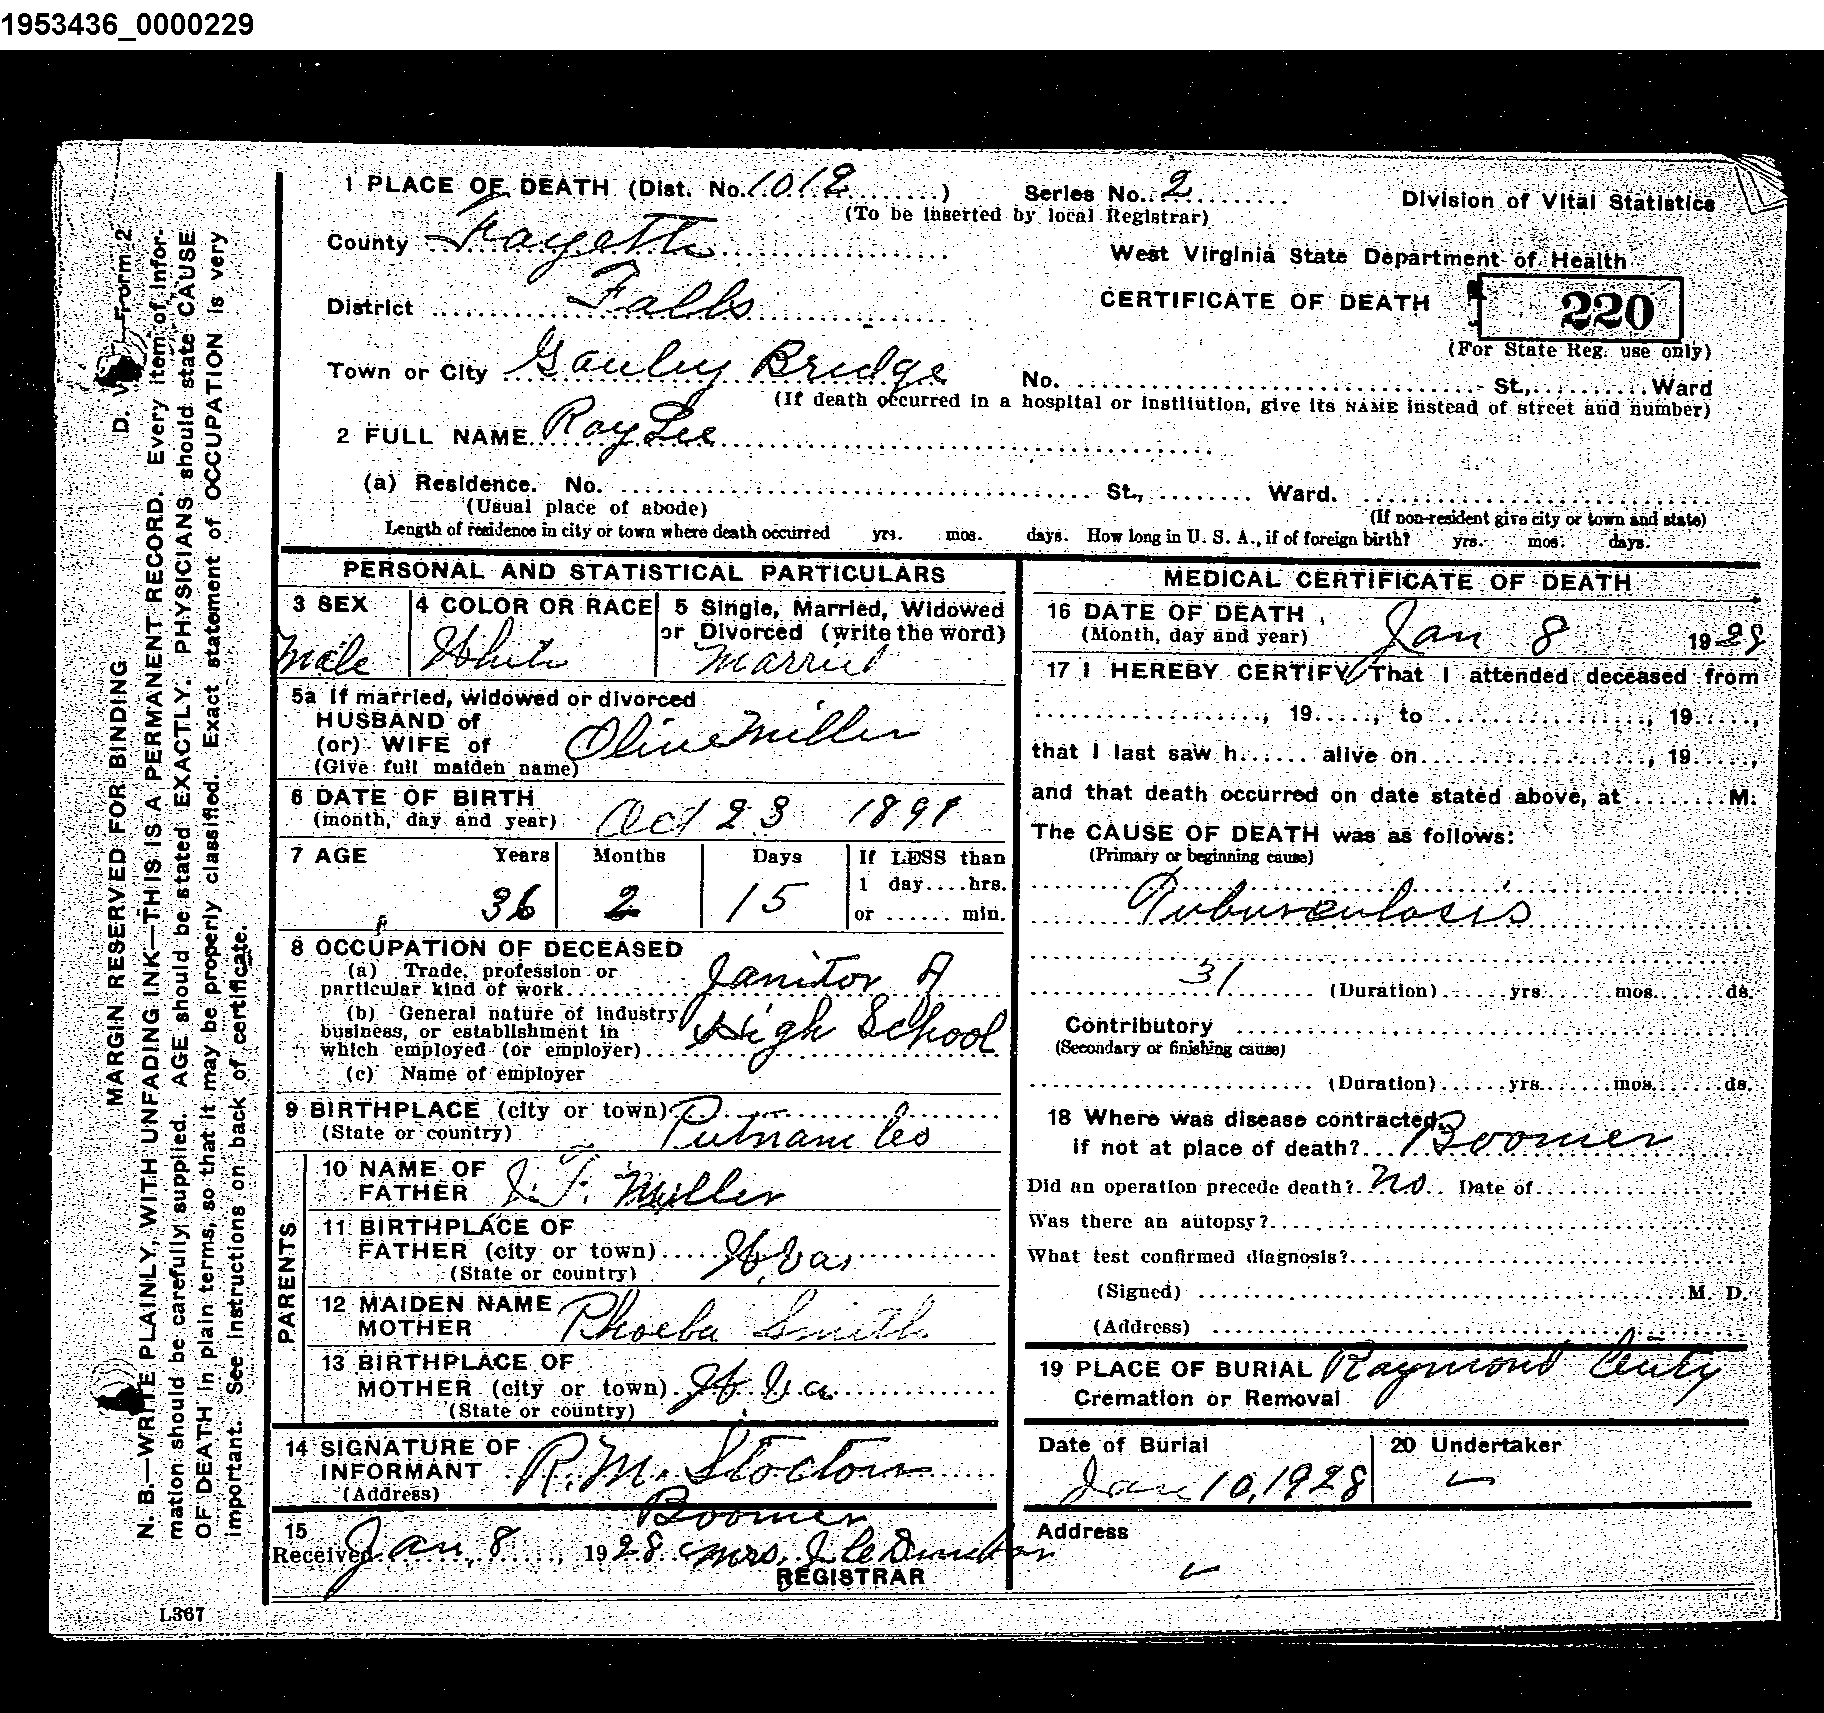 1953436_0000229
1 PLACE OF DEATH (Dist. No. 1012 ) Series No. 2 Division of Vital Statistics
(To be inserted by local Registrar)
County Fayette
West Virginia State Department of Health
District Falls CERTIFICATE OF DEATH 220
(For State Reg. use only)
Town or City Gauley Bridge No. St., Ward
(If death occurred in a hospital or institution, give its NAME instead of street and number)
2 FULL NAME Ray Lee
(a) Residence. No. St., Ward.
(Usual place of abode) (If non-resident give city or town and state)
Length of residence in city or town where death occurred yrs. mos. days. How long in U. S. A., if of foreign birth? yrs. mos. days.
PERSONAL AND STATISTICAL PARTICULARS
3 SEX 4 COLOR OR RACE 5 Single, Married, Widowed
or Divorced (write the word)
Male White Married
5a If married, widowed or divorced
HUSBAND of
(or) WIFE of Olive Miller
(Give full maiden name)
6 DATE OF BIRTH
(month, day and year) Oct 23 1891
7 AGE Years Months Days If LESS than
1 day....hrs.
36 2 15 or ...... min.
8 OCCUPATION OF DECEASED
(a) Trade, profession or
particular kind of work Janitor
(b) General nature of industry
business, or establishment in
which employed (or employer) High School
(c) Name of employer
9 BIRTHPLACE (city or town)
(State or country) Putnam Co
PARENTS
10 NAME OF
FATHER J. F. Miller
11 BIRTHPLACE OF
FATHER (city or town) W. Va
(State or country)
12 MAIDEN NAME
MOTHER Phoeba Smith
13 BIRTHPLACE OF
MOTHER (city or town) W. Va
(State or country)
14 SIGNATURE OF
INFORMANT R. M. Stocton
(Address) Boomer
15
Received Jan, 8, 1928 Mrs. J. C. Dunbar
REGISTRAR
MEDICAL CERTIFICATE OF DEATH
16 DATE OF DEATH
(Month, day and year) Jan 8 1928
17 I HEREBY CERTIFY, That I attended deceased from
, 19....., to , 19.....,
that I last saw h...... alive on , 19.....,
and that death occurred on date stated above, at M.
The CAUSE OF DEATH was as follows:
(Primary or beginning cause)
Tuburculosis
31 (Duration) yrs. mos. ds.
Contributory
(Secondary or finishing cause)
(Duration) yrs. mos. ds.
18 Where was disease contracted,
if not at place of death? Boomer
Did an operation precede death? No Date of
Was there an autopsy?
What test confirmed diagnosis?
(Signed) M. D.
(Address)
19 PLACE OF BURIAL Raymond
Cremation or Removal
Date of Burial 20 Undertaker
Jan 10, 1928
Address
MARGIN RESERVED FOR BINDING
N. B.—WRITE PLAINLY, WITH UNFADING INK—THIS IS A PERMANENT RECORD. Every item of infor-
mation should be carefully supplied. AGE should be stated EXACTLY. PHYSICIANS should state CAUSE
OF DEATH in plain terms, so that it may be properly classified. Exact statement of OCCUPATION is very
important. See instructions on back of certificate.
Form 2
L367